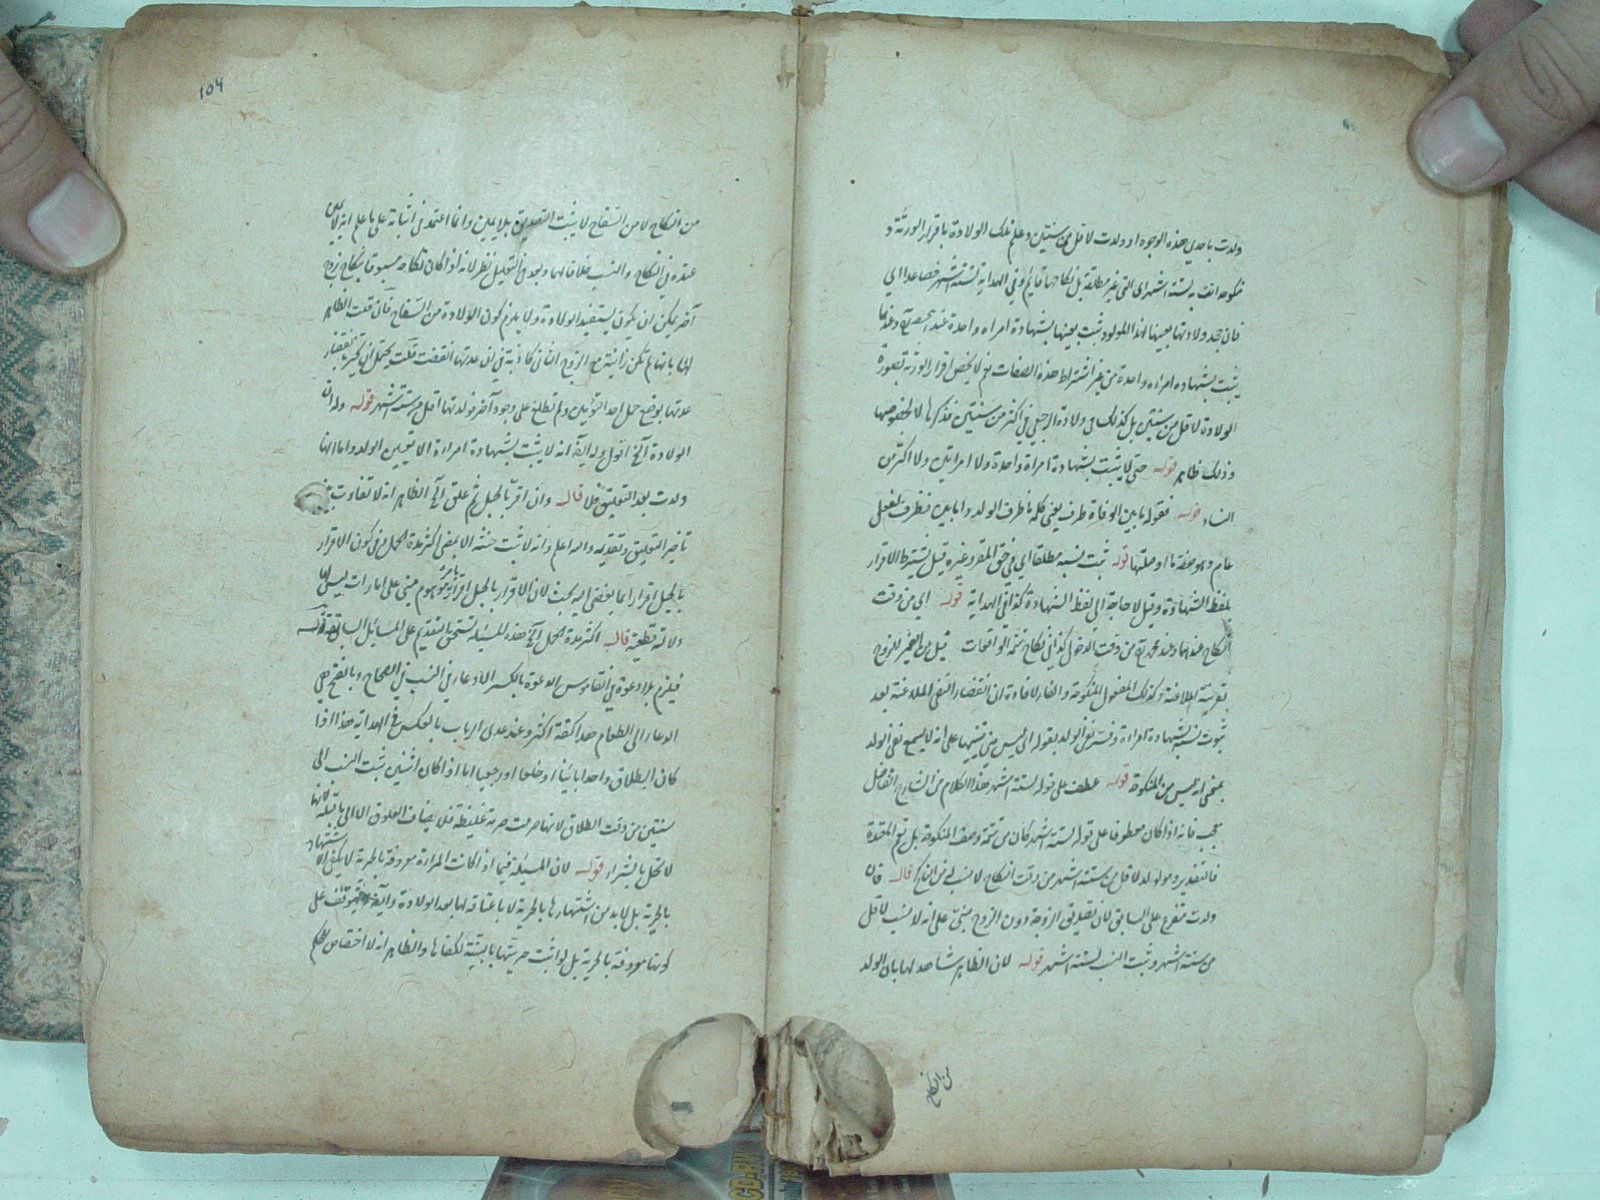 ولدت باحدي هذه الوجوه او ولدت لاقل من سنتين وعلم تلك الولادة باقرار الورثة و
منكوحة اتت به لستة اشهر اي التي غير مطلقة بل نكاحها قايم وفي الهداية لستة اشهر فصاعدا اي
فان جحد ولادتها بعينها لهذا المولود ثبت بعينها بشهادة امراة واحدة عند
يثبت بشهادة امراة واحدة من غير اشتراط هذه الصفات ثم لا يخص اقرار الورثة بصورة
الولادة لاقل من سنتين بل كذلك في ولادة الرجعي في اكثر من سنتين فذكرها لا لخصوصها
وذلك ظاهر قوله حتى لا يثبت بشهادة امراة واحدة ولا امراتين ولا اكثر من
النساء قوله فقوله ما بين الوفاة ظرف يعني كلمة ما ظرف الولد واما بين فظرف لفعل
عام وهو صفة ما او صلتها قوله ثبت نسبه مطلقا اي في حق المقر وغيره قيل يشترط الاقرار
بلفظ الشهادة وقيل لا حاجة الى لفظ الشهادة كذا في الهداية قوله اي من وقت
النكاح عندهما وعند محمد من وقت الدخول كذا في نكاح تتمة الواقعات قيل من الضمير للزوج
بقرينة الملاعنة وكذلك المفعول للمنكوحة والفاء لافادة ان اقتضاء النفي الملاعنة بعد
ثبوت نسبه بشهادة امراة وفسر نفي الولد بقوله اي ليس مني تنبيها على انه لا يسمع نفي الولد
بمعنى انه ليس من المنكوحة قوله عطف على قوله لستة اشهر هذا الكلام من الشارح الفاضل
عجب فانه اذا كان معطوفا على قوله لستة اشهر كان من تتمة وصف المنكوحة بل تتم المقدمة
فالتقدير ومولود لاقل من ستة اشهر من وقت النكاح لا نسب له من الناكح قال فان
ولدت متفرع على السابق لان تصديق الزوجة دون الزوج مبني على انه لا نسب لاقل
من ستة اشهر وثبت النسب لستة اشهر قوله لان الظاهر شاهد لها بان الولد
من النكاح
104
من النكاح لا من السفاح لا يثبت التصديق بلا يمين وانما اعتمد في اثباته على ما علم انه لا يمين
عنده في النكاح والنسب خلافا لهما وبعد في التعليل نظر لانه اذا كان نكاحه مسبوقا بنكاح زوج
آخر يمكن ان يكون يستفيد الولادة ولا يلزم كون الولادة من السفاح فان قلت الظاهر
انها لم تكن زانية مع الزوج الثاني كاذبة في ان عدتها انقضت قلت يحتمل ان تخبر بانقضاء
عدتها بوضع حمل احد التوأمين ولم تطلع على وجود آخر فولدتها اقل من ستة اشهر قوله وله ان
الولادة آلخ اقول وله ايضا انه لا يثبت بشهادة امراة الا تعيين الولد واما انها
ولدت بعد التعليق فلا قال وان اقر بالحبل ثم علق آلخ الظاهر انه لا تفاوت بين
تاخير التعليق وتقديمه والله اعلم وانه لا يثبت حنثه الا بمضي اكثر مدة الحمل وفي كون الاقرار
بالحبل اقرارا بما يفضي اليه بحث لان الاقرار بالحبل اقرار بامر موهوم مبني على امارات ليس لها
دلالة قطعية قال اكثر مدة الحمل آلخ هذه المسئلة تستحق التقديم على المسائل السابقة قوله
فيلزم بلا دعوة في القاموس الدعوة بالكسر الادعاء في النسب في الصحاح وبالفتح هي
الدعاء الى الطعام هذا لكنه اكثر وعند عدي الرباب بالعكس في الهداية هذا اذا
كان الطلاق واحدا بائنا او خلعا او رجعيا اما اذا كان اثنين ثبت النسب الى
سنتين من وقت الطلاق لانها حرمت حرمة غليظة فلا يضاف العلوق الا الى ما قبله لانها
لا تحل بالشراء قوله لان المسئلة فيما اذا كانت المراة معروفة بالحرية لا يكفي الاشتهار
بالحرية بل لا بد من اشتهارها بالحرية لا باعتاقه لها بعد الولادة وايضا يتوقف على
كونها معروفة بالحرية بل لو اثبت حريتها بالبينة لكفاها والظاهر انه لا اختصاص للحكم